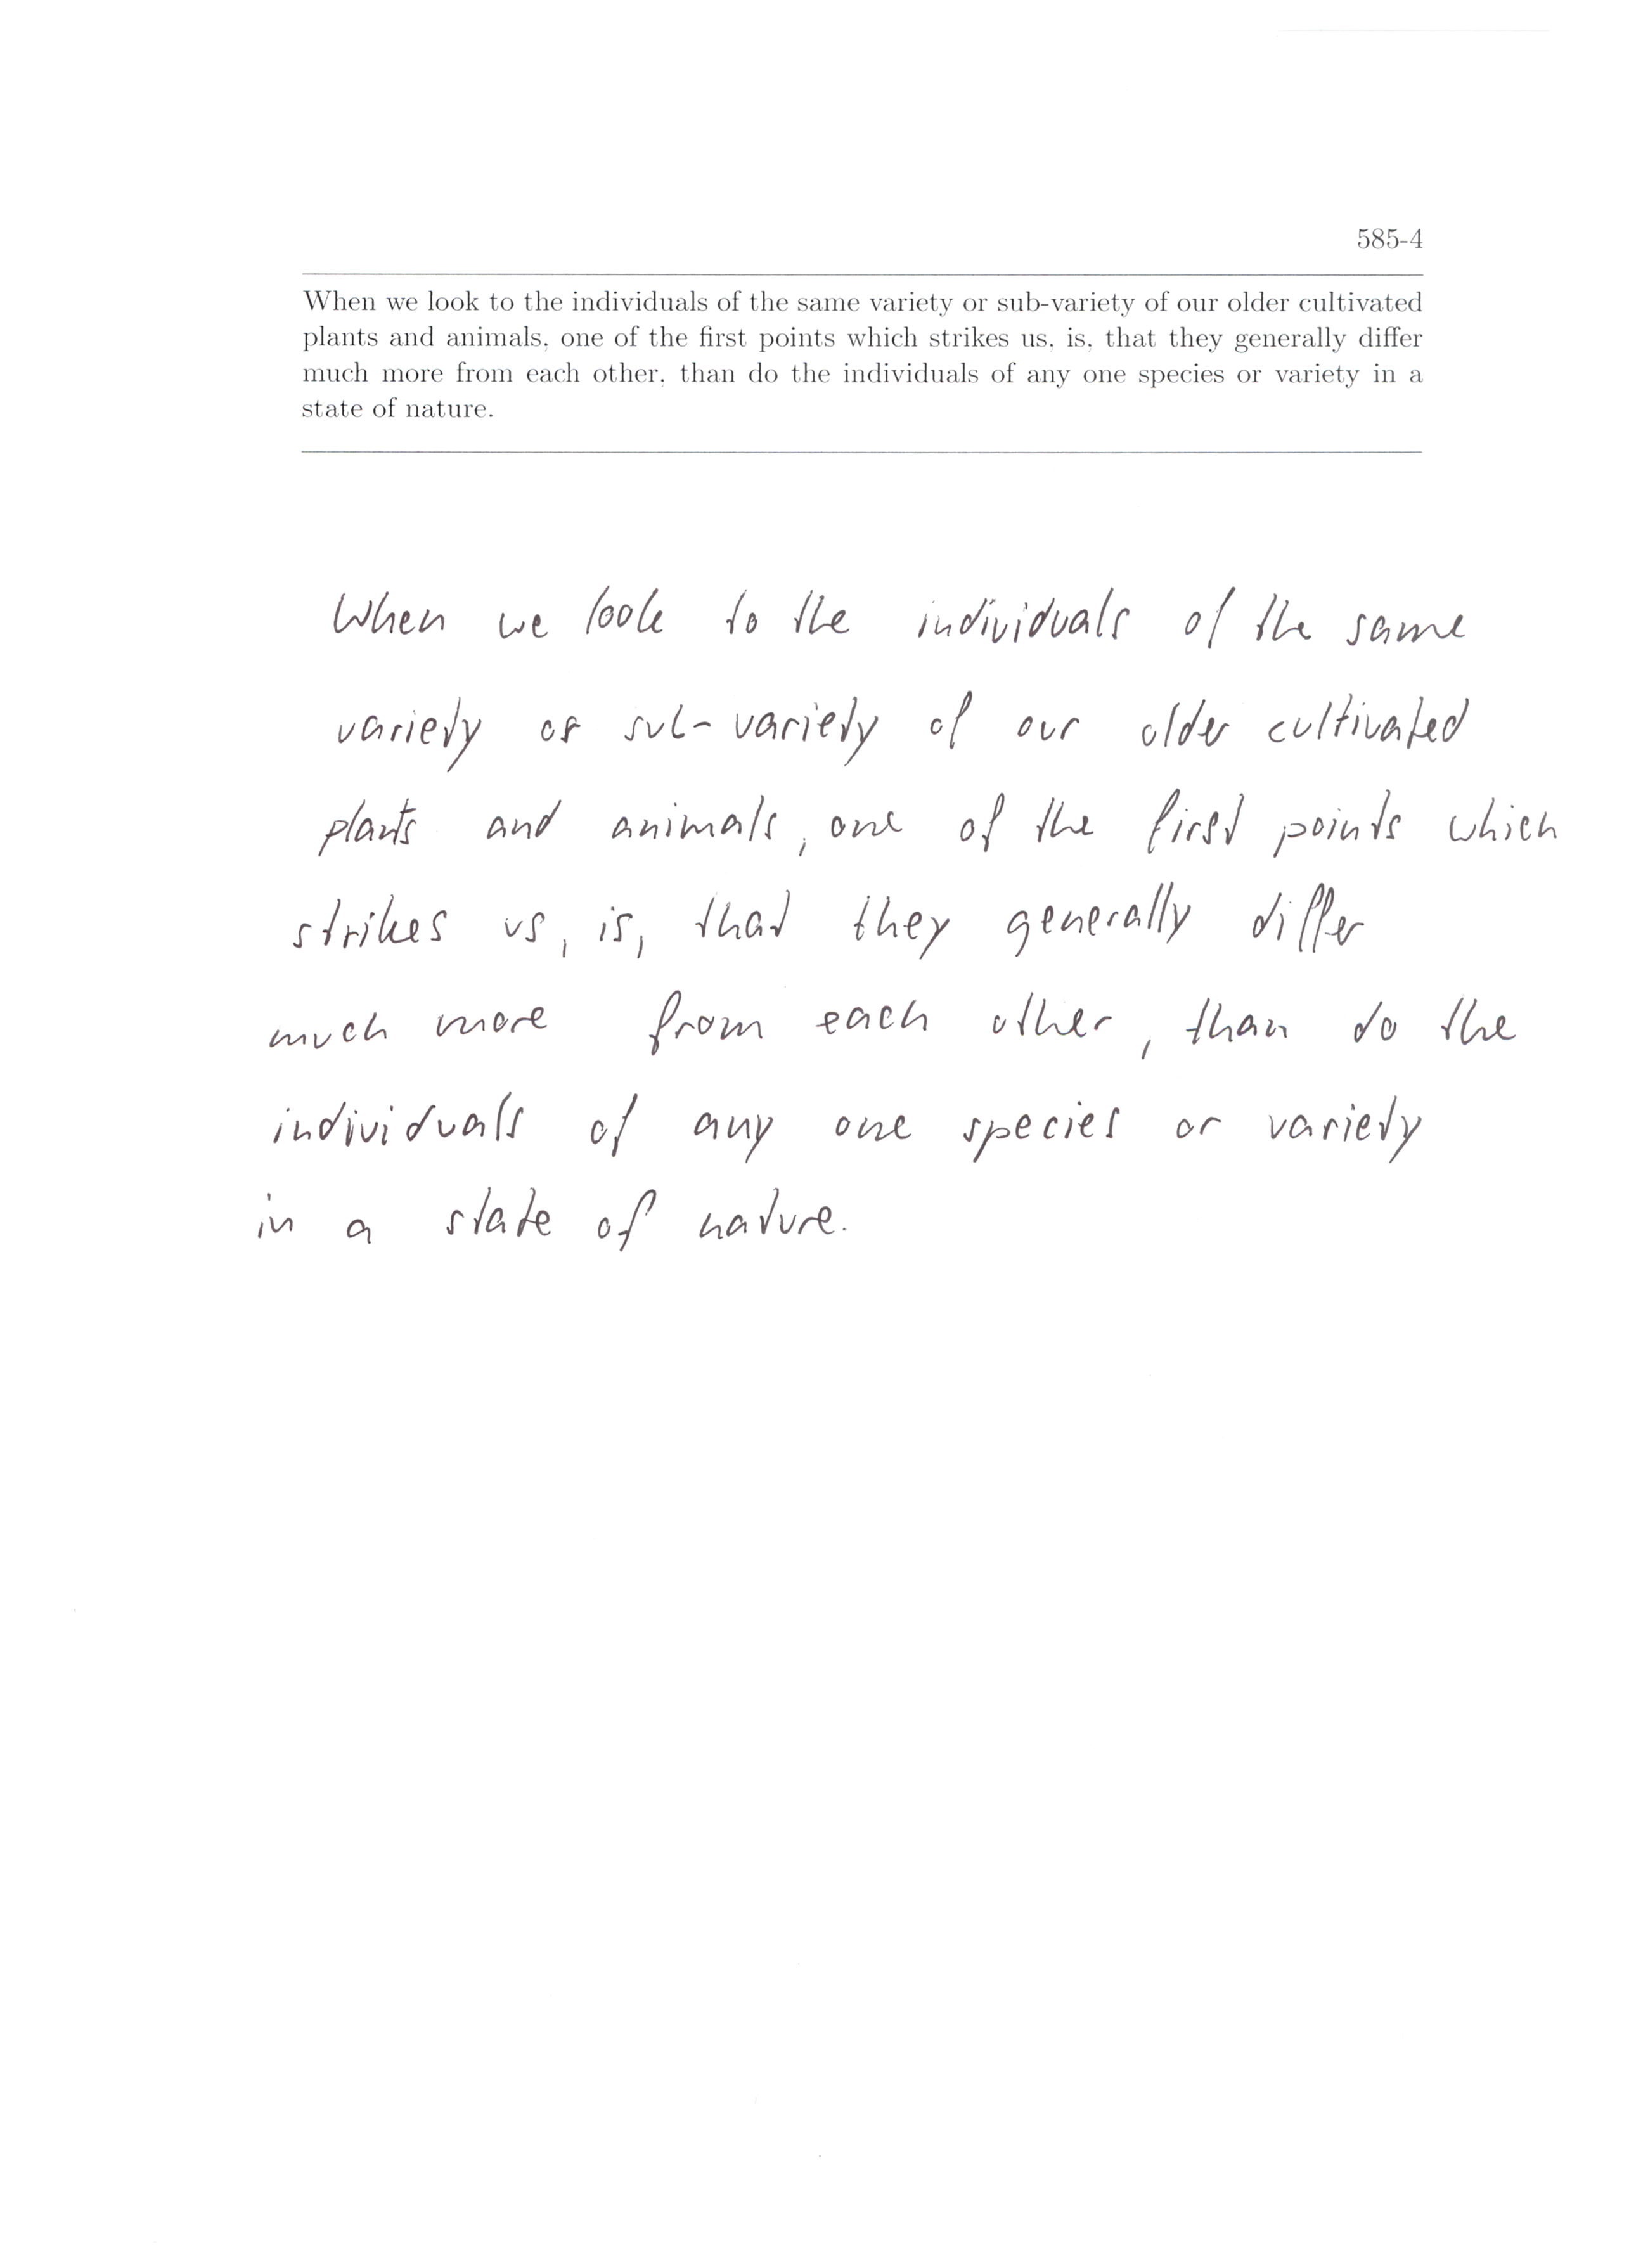 585-4
When we look to the individuals of the same variety or sub-variety of our older cultivated
plants and animals, one of the first points which strikes us, is, that they generally differ
much more from each other, than do the individuals of any one species or variety in a
state of nature.
When we look to the individuals of the same
variety or sub-variety of our older cultivated
plants and animals, one of the first points which
strikes us, is, that they generally differ
much more from each other, than do the
individuals of any one species or variety
in a state of nature.